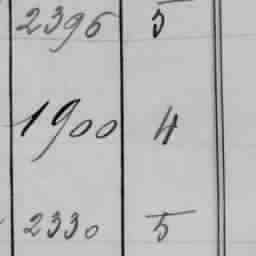 2396 5
1900 4
2330 5